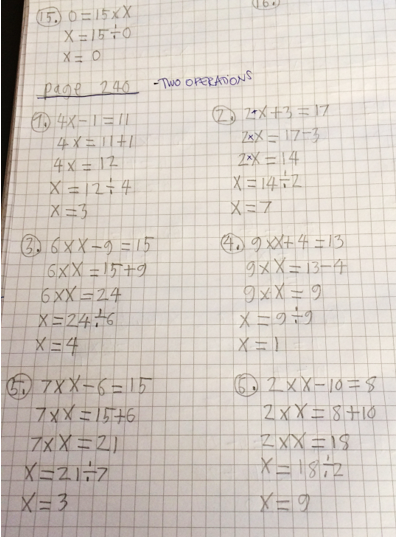 15. 0=15xX
16.
X=15÷0
X=0
page 240 -TWO OPERATIONS
1. 4X-1=11
4X=11+1
4X=12
X=12÷4
X=3
2. 2xX+3=17
2xX=17-3
2xX=14
X=14÷2
X=7
3. 6xX-9=15
6xX=15+9
6xX=24
X=24÷6
X=4
4. 9xX+4=13
9xX=13-4
9xX=9
X=9÷9
X=1
5. 7xX-6=15
7xX=15+6
7xX=21
X=21÷7
X=3
6. 2xX-10=8
2xX=8+10
2xX=18
X=18÷2
X=9